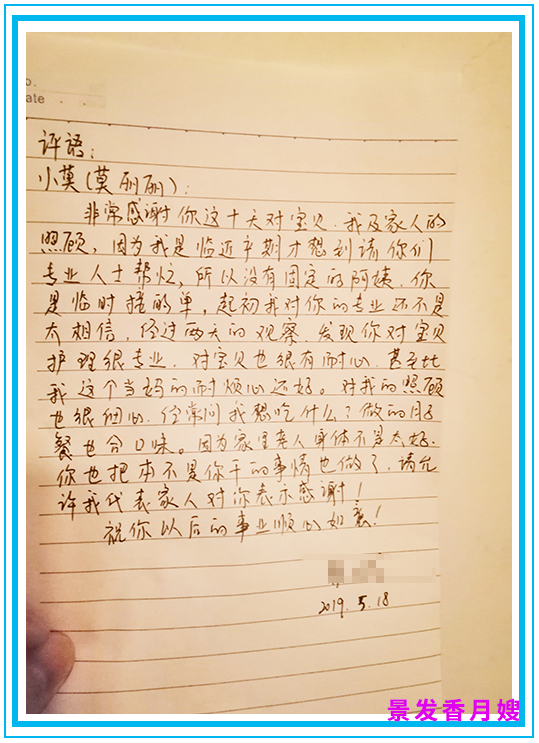 o.
ate
评语：
小莫（莫丽丽）：
非常感谢你这十天对宝贝、我及家人的
照顾，因为我是临近产期才想到请你们
专业人士帮忙，所以没有固定的阿姨，你
是临时接的单，起初我对你的专业还不是
太相信，经过两天的观察，发现你对宝贝
护理很专业，对宝贝也很有耐心，甚至比
我这个当妈的耐烦心还好。对我的照顾
也很细心，经常问我想吃什么？做的月子
餐也合口味。因为家里老人身体不是太好，
你也把本不是你干的事情也做了，请允
许我代表家人对你表示感谢！
祝你以后的事业顺心如意！
2019.5.18
景发香月嫂